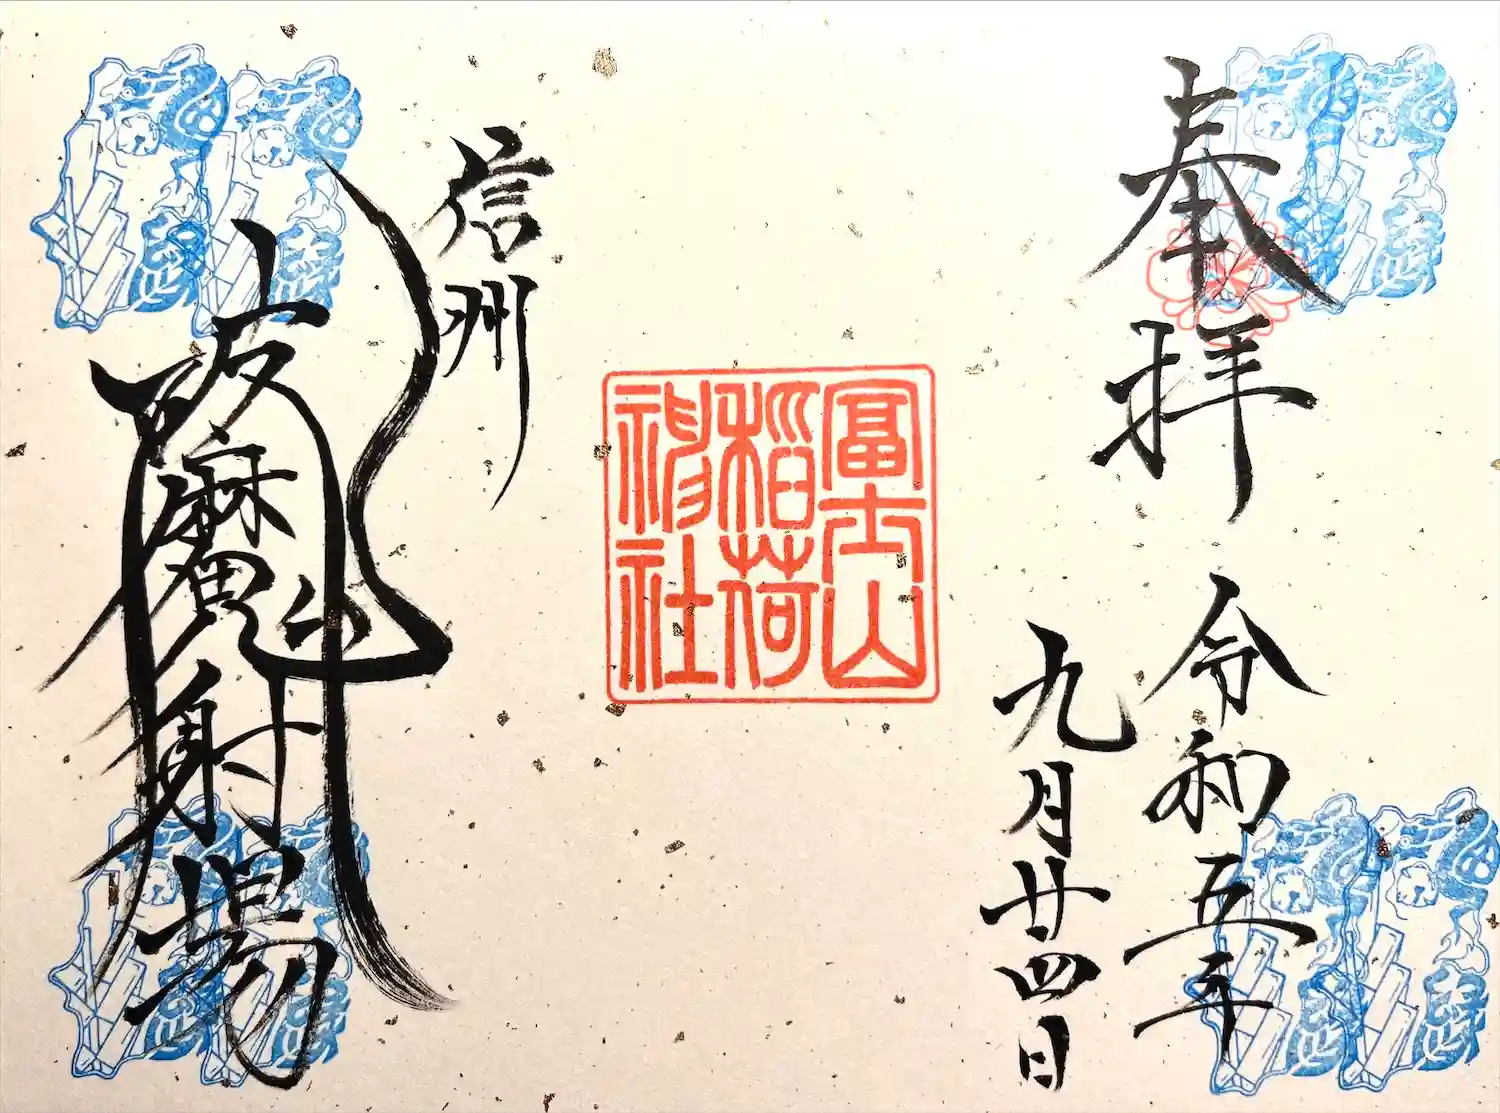 奉拝
令和五年
九月廿四日
冨士山
稲荷
神社
信州
破魔射場